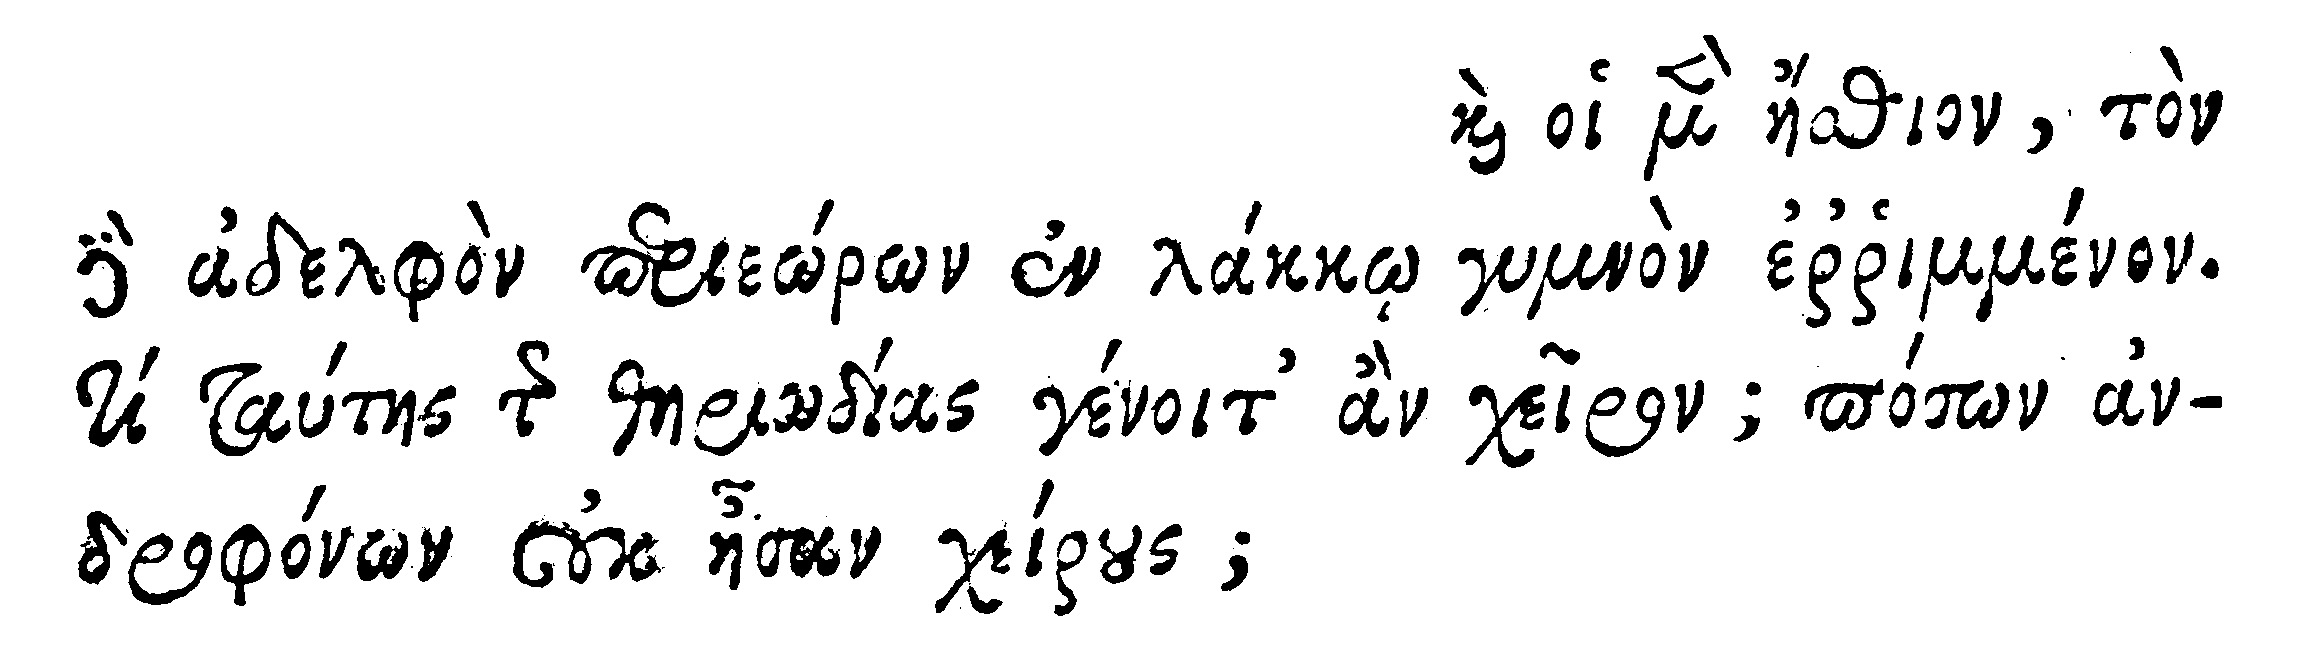 καὶ οἱ μὲν ἤσθιον, τὸν
δὲ ἀδελφὸν περιεώρων ἐν λάκκῳ γυμνὸν ἐῤῥιμμένον.
τί ταύτης τῆς θηριωδίας γένοιτ’ ἂν χεῖρον; πόσων ἀν-
δροφόνων οὐκ ἦσαν χείρους;